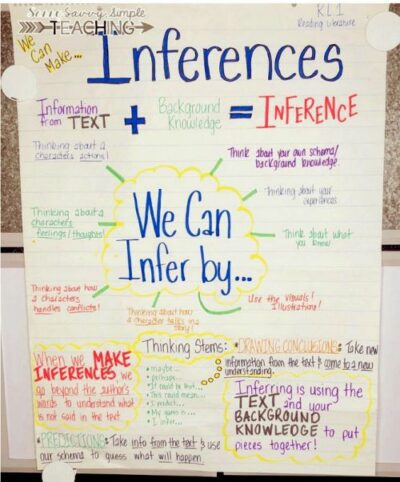 Semi Savvy, Simple
TEACHING
RL.1
Reading Literature
We
Can
Make...
Inferences
Information
from TEXT
+
Background
Knowledge
=
INFERENCE
Thinking about a
characters actions!
Think about your own schema/
background knowledge.
Thinking about your
experiences
Thinking about a
characters
feelings/thoughts!
We Can
Infer by...
Think about what
you know
Thinking about how
a characters
handles conflicts!
Thinking about how
a character talks in a
story!
Use the visuals!
Illustrations!
When we MAKE
INFERENCES we
go beyond the author's
words to understand
what is
not said in the text
Thinking Stems:
• maybe...
• perhaps...
• It could be that...
• This could mean...
• I predict...
• My guess is...
• I infer...
• DRAWING CONCLUSIONS: Take new
information from the text & come to a new
understanding.
Inferring is using the
TEXT and your
BACKGROUND
KNOWLEDGE to put
pieces together!
• PREDICTIONS: Take info from the text & use
our schema to guess what will happen.